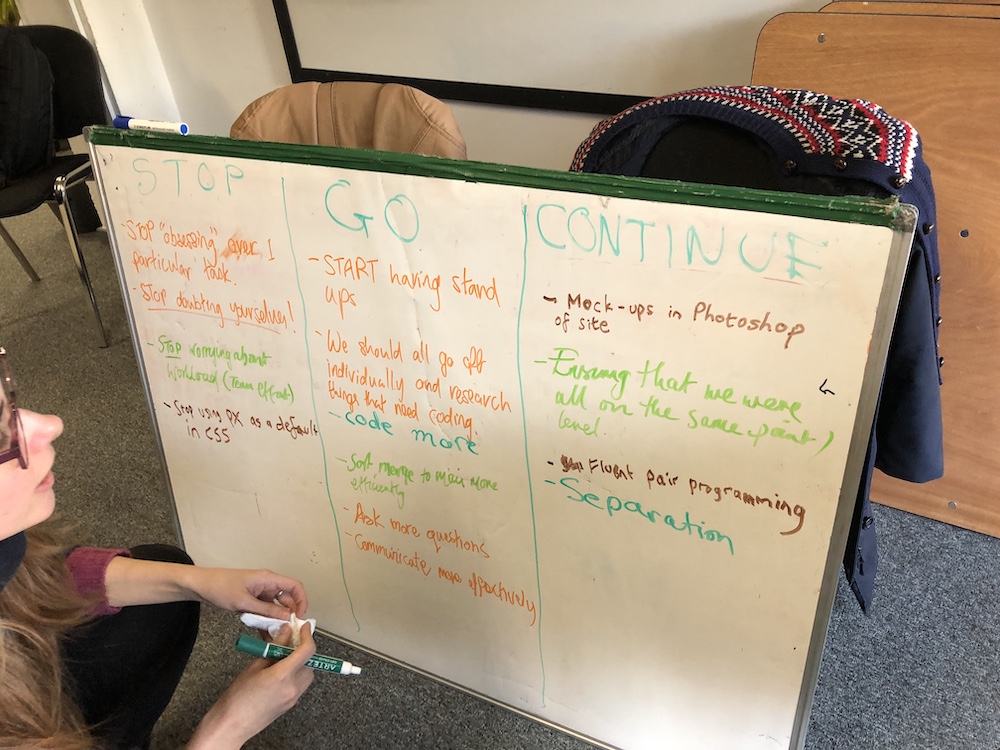 STOP
- STOP "obsessing" over 1
particular task.
- Stop doubting yourselves!
- Stop worrying about
workload (Team effort)
- Stop using PX as a default
in CSS
GO
- START having stand
ups
- We should all go off
individually and research
things that need coding.
- code more
- Sort merge to main more
efficiently
- Ask more questions
- Communicate more effectively
CONTINUE
- Mock-ups in Photoshop
of site
- Ensuring that we were
all on the same point/
level.
- Fluent pair programming
- Separation
ARTEZ